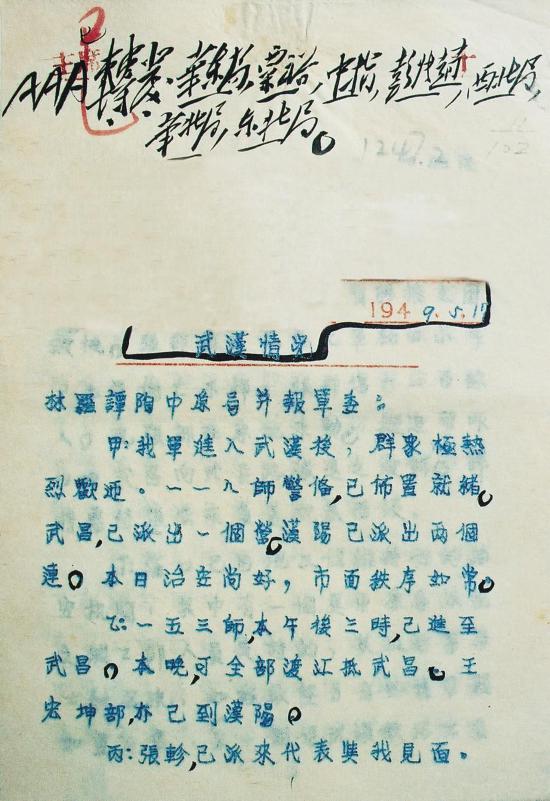 AAA 華東局, 粟裕, 中指, 彭 西北局,
華北局, 东北局。
1247.2
102
1949.5.17
武漢情况
林羅譚陶中原局并報軍委：
甲：我軍進入武漢後，群衆極熱
烈歡迎。一一八師警俻，已佈置就緒。
武昌，已派出一個營。漢陽已派出两個
連。本日治安尚好，市面秩序如常。
乙：一五三師，本午後三時，已進至
武昌。本晚，可全部渡江抵武昌。王
宏坤部，亦已到漢陽。
丙：張軫，已派來代表與我見面。